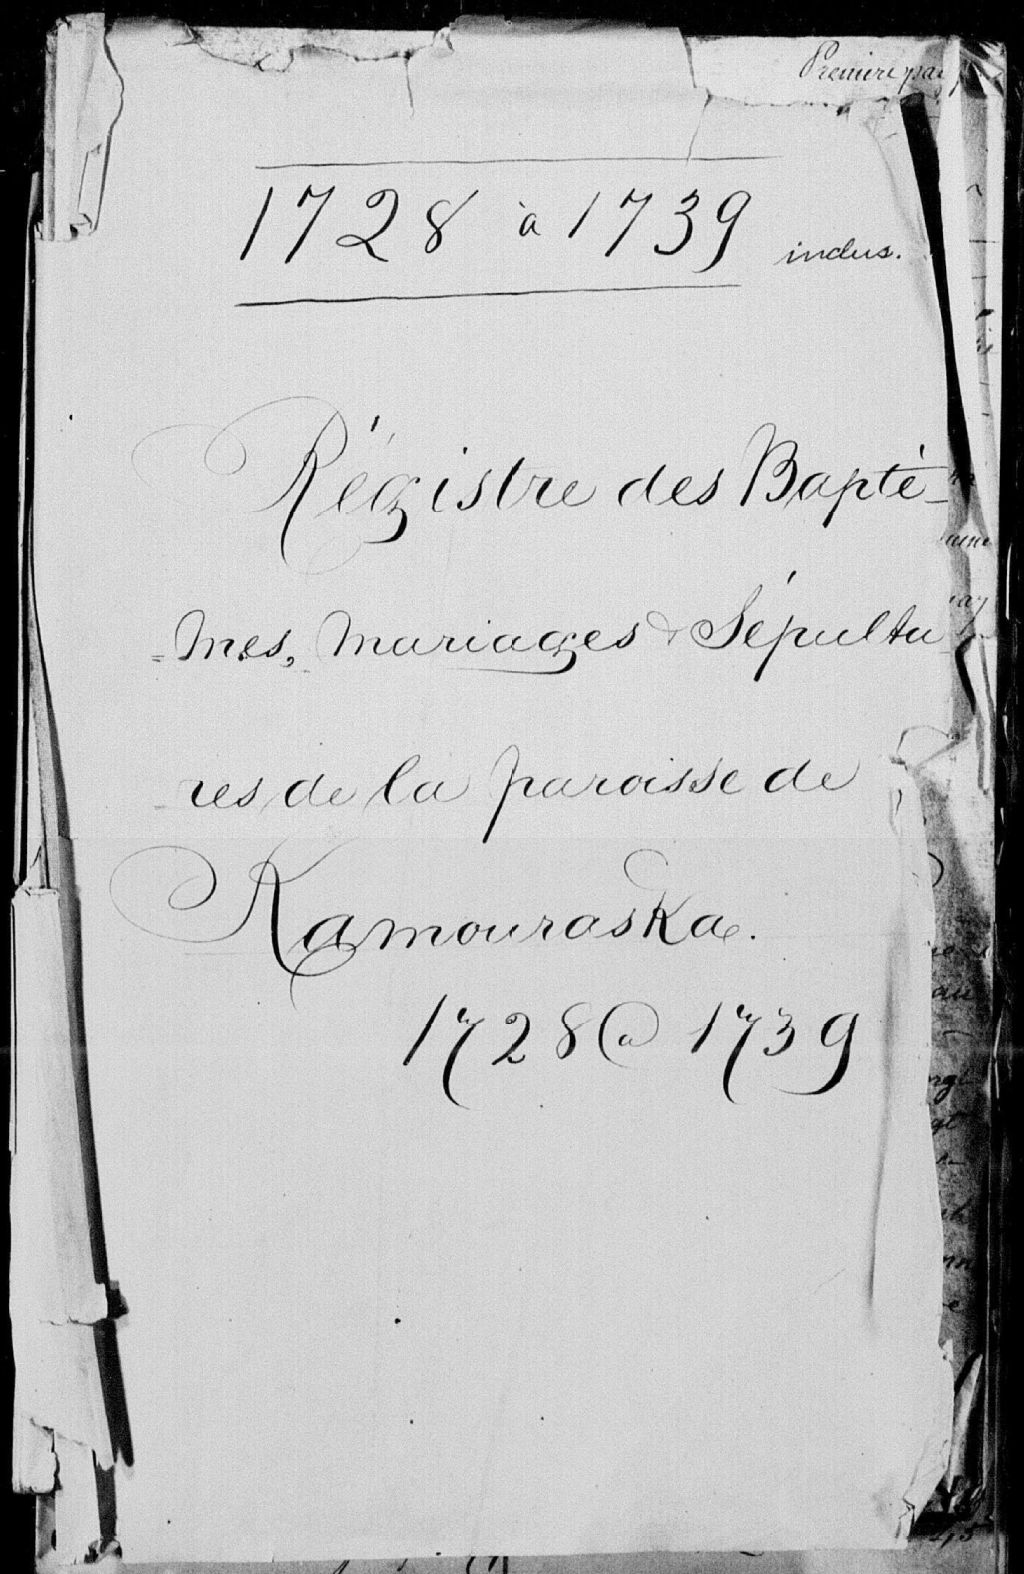 Première
1728 à 1739 inclus.
Régistre des Baptê-
=mes, mariages & Sépultu
res de la paroisse de
Kamouraska.
1728 à 1739